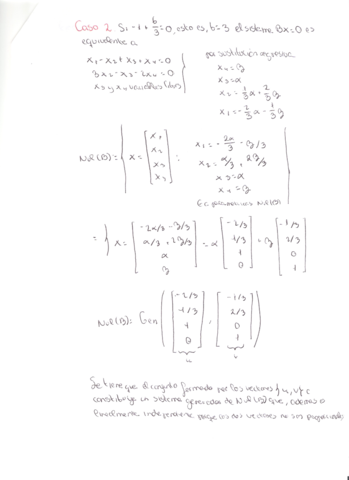 Caso 2 Si -1 + b/3 = 0, esto es, b = 3 el sistema Bx = 0 es
equivalente a
x1 - x2 + x3 + x4 = 0
3x2 - x3 - 2x4 = 0
x3 y x4 variables libres
por sustitución regresiva
x4 = β
x3 = α
x2 = 1/3 α + 2/3 β
x1 = -2/3 α - 1/3 β
Nul(B) = { x = [x1 x2 x3 x4] : x1 = -2α/3 - β/3
x2 = α/3 + 2β/3
x3 = α
x4 = β }
Ec paramétricas Nul(B)
= { x = [-2α/3 - β/3, α/3 + 2β/3, α, β] = α [-2/3, 1/3, 1, 0] + β [-1/3, 2/3, 0, 1] }
Nul(B) = Gen ( [-2/3, 1/3, 1, 0] , [-1/3, 2/3, 0, 1] )
u v
Se tiene que el conjunto formado por los vectores {u, v}
constituye un sistema generador de Nul(B) que, además
linealmente independiente los dos vectores no son proporcionales